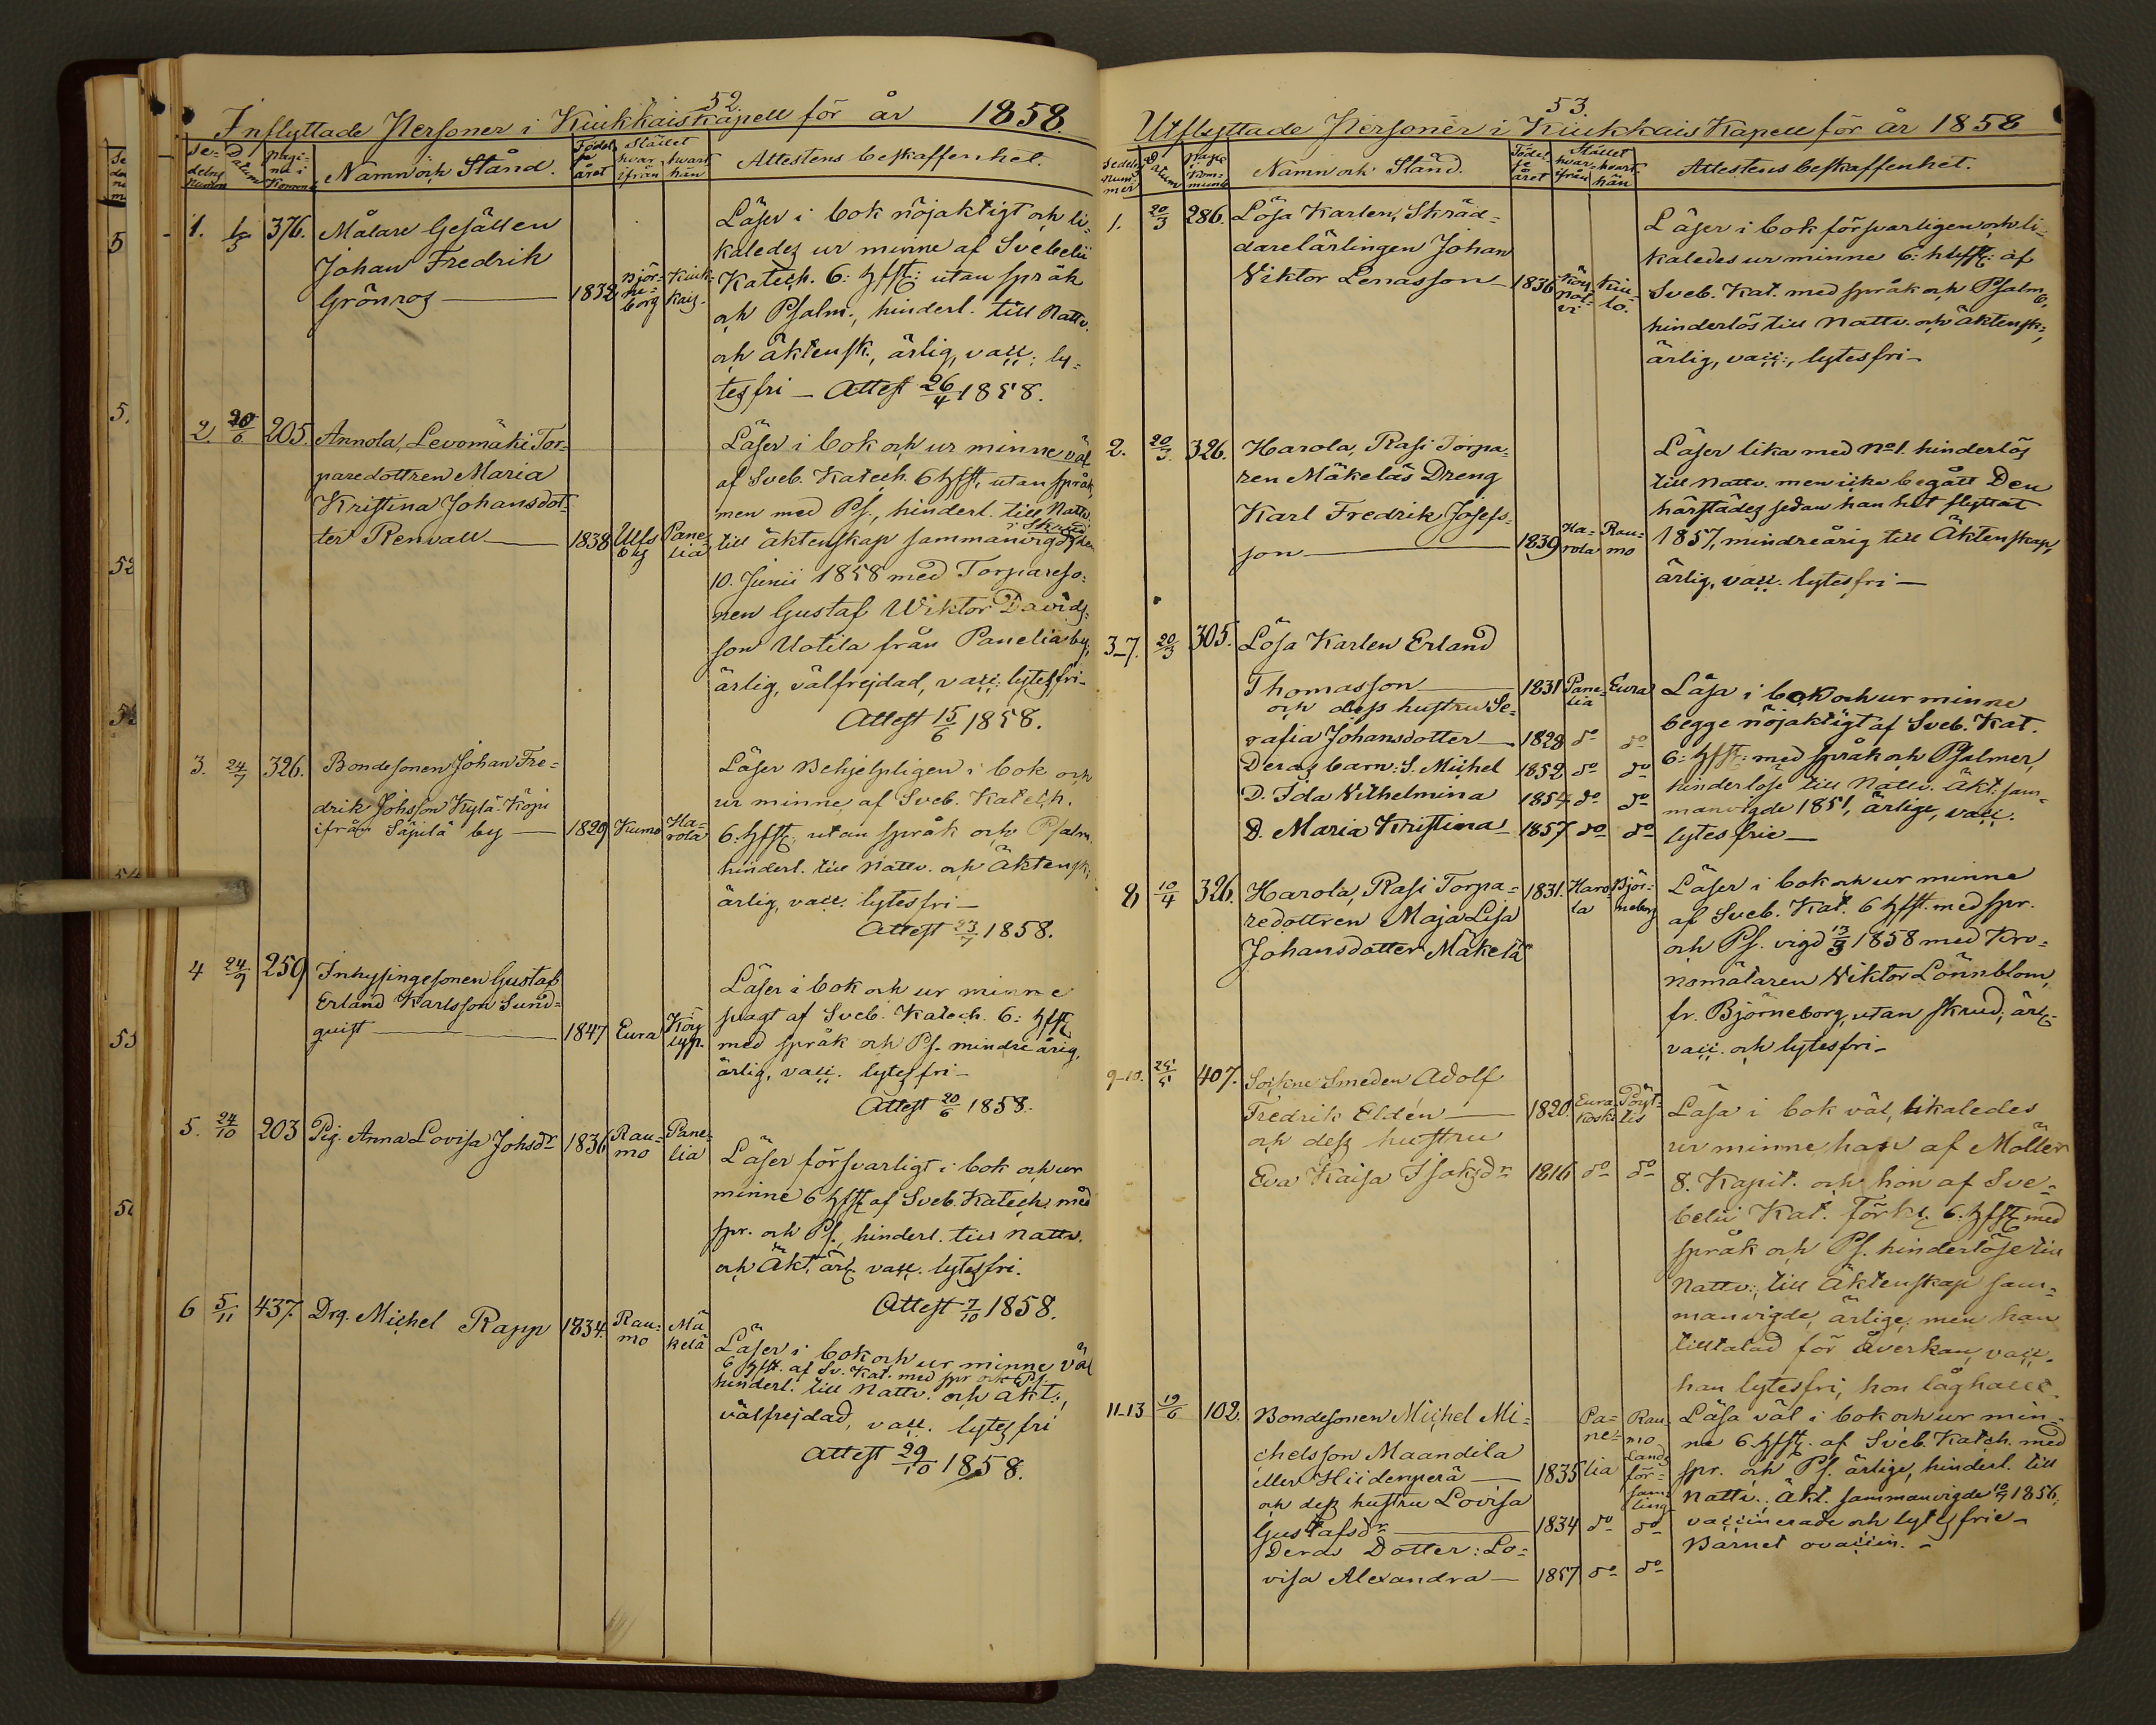 52.
Inflyttade Personer i Kiukkais Kapell för år 1858.
Se-
delns
Datum
pagi-
na i
Namn och Stånd.
Födel-
se
året
Stället
hvar-
ifrån
hvart-
hän
Attestens beskaffenhet.
1. 1/5 376. Målare Gesällen
Johan Fredrik
Grönros — 1832 Björ-
ne-
borg
Kiuk-
kais.
Läser i bok nöjaktigt och li-
kaledes ur minne af Svebelii
Katech. 6: hfst: utan språk
och Psalm., hinderl. till Nattv.
och äktensk., ärlig, vacc: ly-
tesfri — Attest 26/4 1858.
2. 20/6 205. Annola, Levomäki Tor-
paredottren Maria
Kristina Johansdot-
ter Renvall — 1838 Ulfs
by
Pane-
lia
Läser i bok och ur minne väl
af Sveb. Katech. 6 hfst, utan språk,
men med Ps., hinderl. till Nattv.
till äktenskap sammanvigd i Skrud den
10. Junii 1858 med Torpareso-
nen Gustaf Wiktor Davids-
son Uotila från Panelia by,
ärlig, välfrejdad, vacc: lytesfri —
Attest 15/6 1858.
3. 24/7 326. Bondesonen Johan Fre-
drik Johsson Kylä-Köpi
ifrån Säpilä by — 1829 Kumo Ha-
rola
Läser Behjelpligen i bok och
ur minne af Sveb. Katech.
6 hfst, utan språk och Psalm.
hinderl. till Nattv. och Äktensk.,
ärlig, vacc. lytesfri —
Attest 23/7 1858.
4 24/9 259 Inhysingesonen Gustaf
Erland Karlsson Sund-
quist — 1847 Eura Köy
lyp.
Läser i bok och ur minne
svagt af Sveb. Katech. 6: hfst
med språk och Ps. mindre årig,
ärlig, vacc. lytesfri —
Attest 20/6 1858.
5. 24/10 203 Pig. Anna Lovisa Johsdr 1836 Rau-
mo
Pane-
lia
Läser försvarligt i bok och ur
minne 6 hfst af Sveb. Katech. med
spr. och Ps., hinderl. till Nattv.
och Äkt. ärl. vacc. lytesfri.
Attest 7/10 1858.
6 5/11 437. Drg. Michel Rapp 1834. Rau-
mo
Mä
kelä
Läser i bok och ur minne väl
6 hfst. af Sv. Kat. med spr och Ps.
hinderl. till Nattv. och äkt.,
välfrejdad, vacc. lytesfri
Attest 29/10 1858.
53.
Utflyttade Personer i Kiukkais Kapell för år 1858
Sedels
Num-
mer
Datum
Pag. i
Kom-
munb
Namn och Stånd.
Födel-
se
året
Stället
hvar-
ifrån
hvart-
hän
Attestens beskaffenhet.
1. 20/3 286. Lösa Karlen, Skräd-
darelärlingen Johan
Viktor Lenasson — 1836 Köy
pol-
vi
Kiu-
lo.
Läser i bok försvarligen och li-
kaledes ur minne 6: hfst: af
Sveb. Kat. med språk och Psalm,
hinderlös till Nattv. och äktensk.,
ärlig, vacc:, lytesfri —
2. 20/3. 326. Harola, Rasi Torpa-
ren Mäkeläs Dreng
Karl Fredrik Josefs-
son — 1839 Ha-
rola
Rau-
mo
Läser lika med No 1. hinderlös
till Nattv. men icke begått Den
härstädes sedan han hit flyttat
1857, mindreårig till Äktenskap,
ärlig, vacc. lytesfri —
3–7. 20/3 305. Lösa Karlen Erland
Thomasson — 1831 Pane-
lia
Eura
och dess hustru Se-
rafia Johansdotter — 1828 do do
Deras barn: S. Michel 1852 do do
D. Ida Vilhelmina 1854 do do
D. Maria Kristina — 1857 do do
Läsa i bok och ur minne
begge nöjaktigt af Sveb. Kat.
6: hfst: med språk och Psalmer,
hinderlöse till Nattv. Äkt. sam-
manvigde 1851, ärlige, vacc.
lytesfrie —
8, 10/4 326. Harola, Rasi Torpa-
redottren Maja Lisa
Johansdotter Mäkelä
1831. Haro-
la
Björ-
neborg
Läser i bok och ur minne
af Sveb. Kat. 6 hfst. med spr.
och Ps. vigd 13/3 1858 med Kro-
nomålaren Viktor Lönnblom,
fr. Björneborg, utan skrud, ärl.
vacc. och lytesfri —
9–10. 407. Sockne Smeden Adolf
Fredrik Eldén — 1820. Eura-
koski
Pöyt-
tis
och dess hustru
Eva Kaisa Isaksdr 1816 do do
Läsa i bok väl, likaledes
ur minne han af Möller
8. Kapit. och hon af Sve-
belii Kat. Förkl. 6. hfst med
språk och Ps. hinderlöse till
Nattv., till äktenskap sam-
manvigde, ärlige, men han
tilltalad för åverkan, vacc.
han lytesfri, hon låghalt.
11–13 19/6 102. Bondesonen Michel Mi-
chelsson Maandila
eller Hiidenperä — 1835
Pa-
ne-
lia
Rau-
mo
Lands
för-
sam-
ling
och dess hustru Lovisa
Gustafsdr — 1834 do do
Deras Dotter: Lo-
visa Alexandra — 1857 do do
Läsa väl i bok och ur min-
ne 6. hfst. af Sveb. Katch. med
spr. och Ps. ärlige, hinderl. till
Nattv. Äkt. sammanvigde 1856,
vaccinerade och lytesfrie —
Barnet ovaccin. —